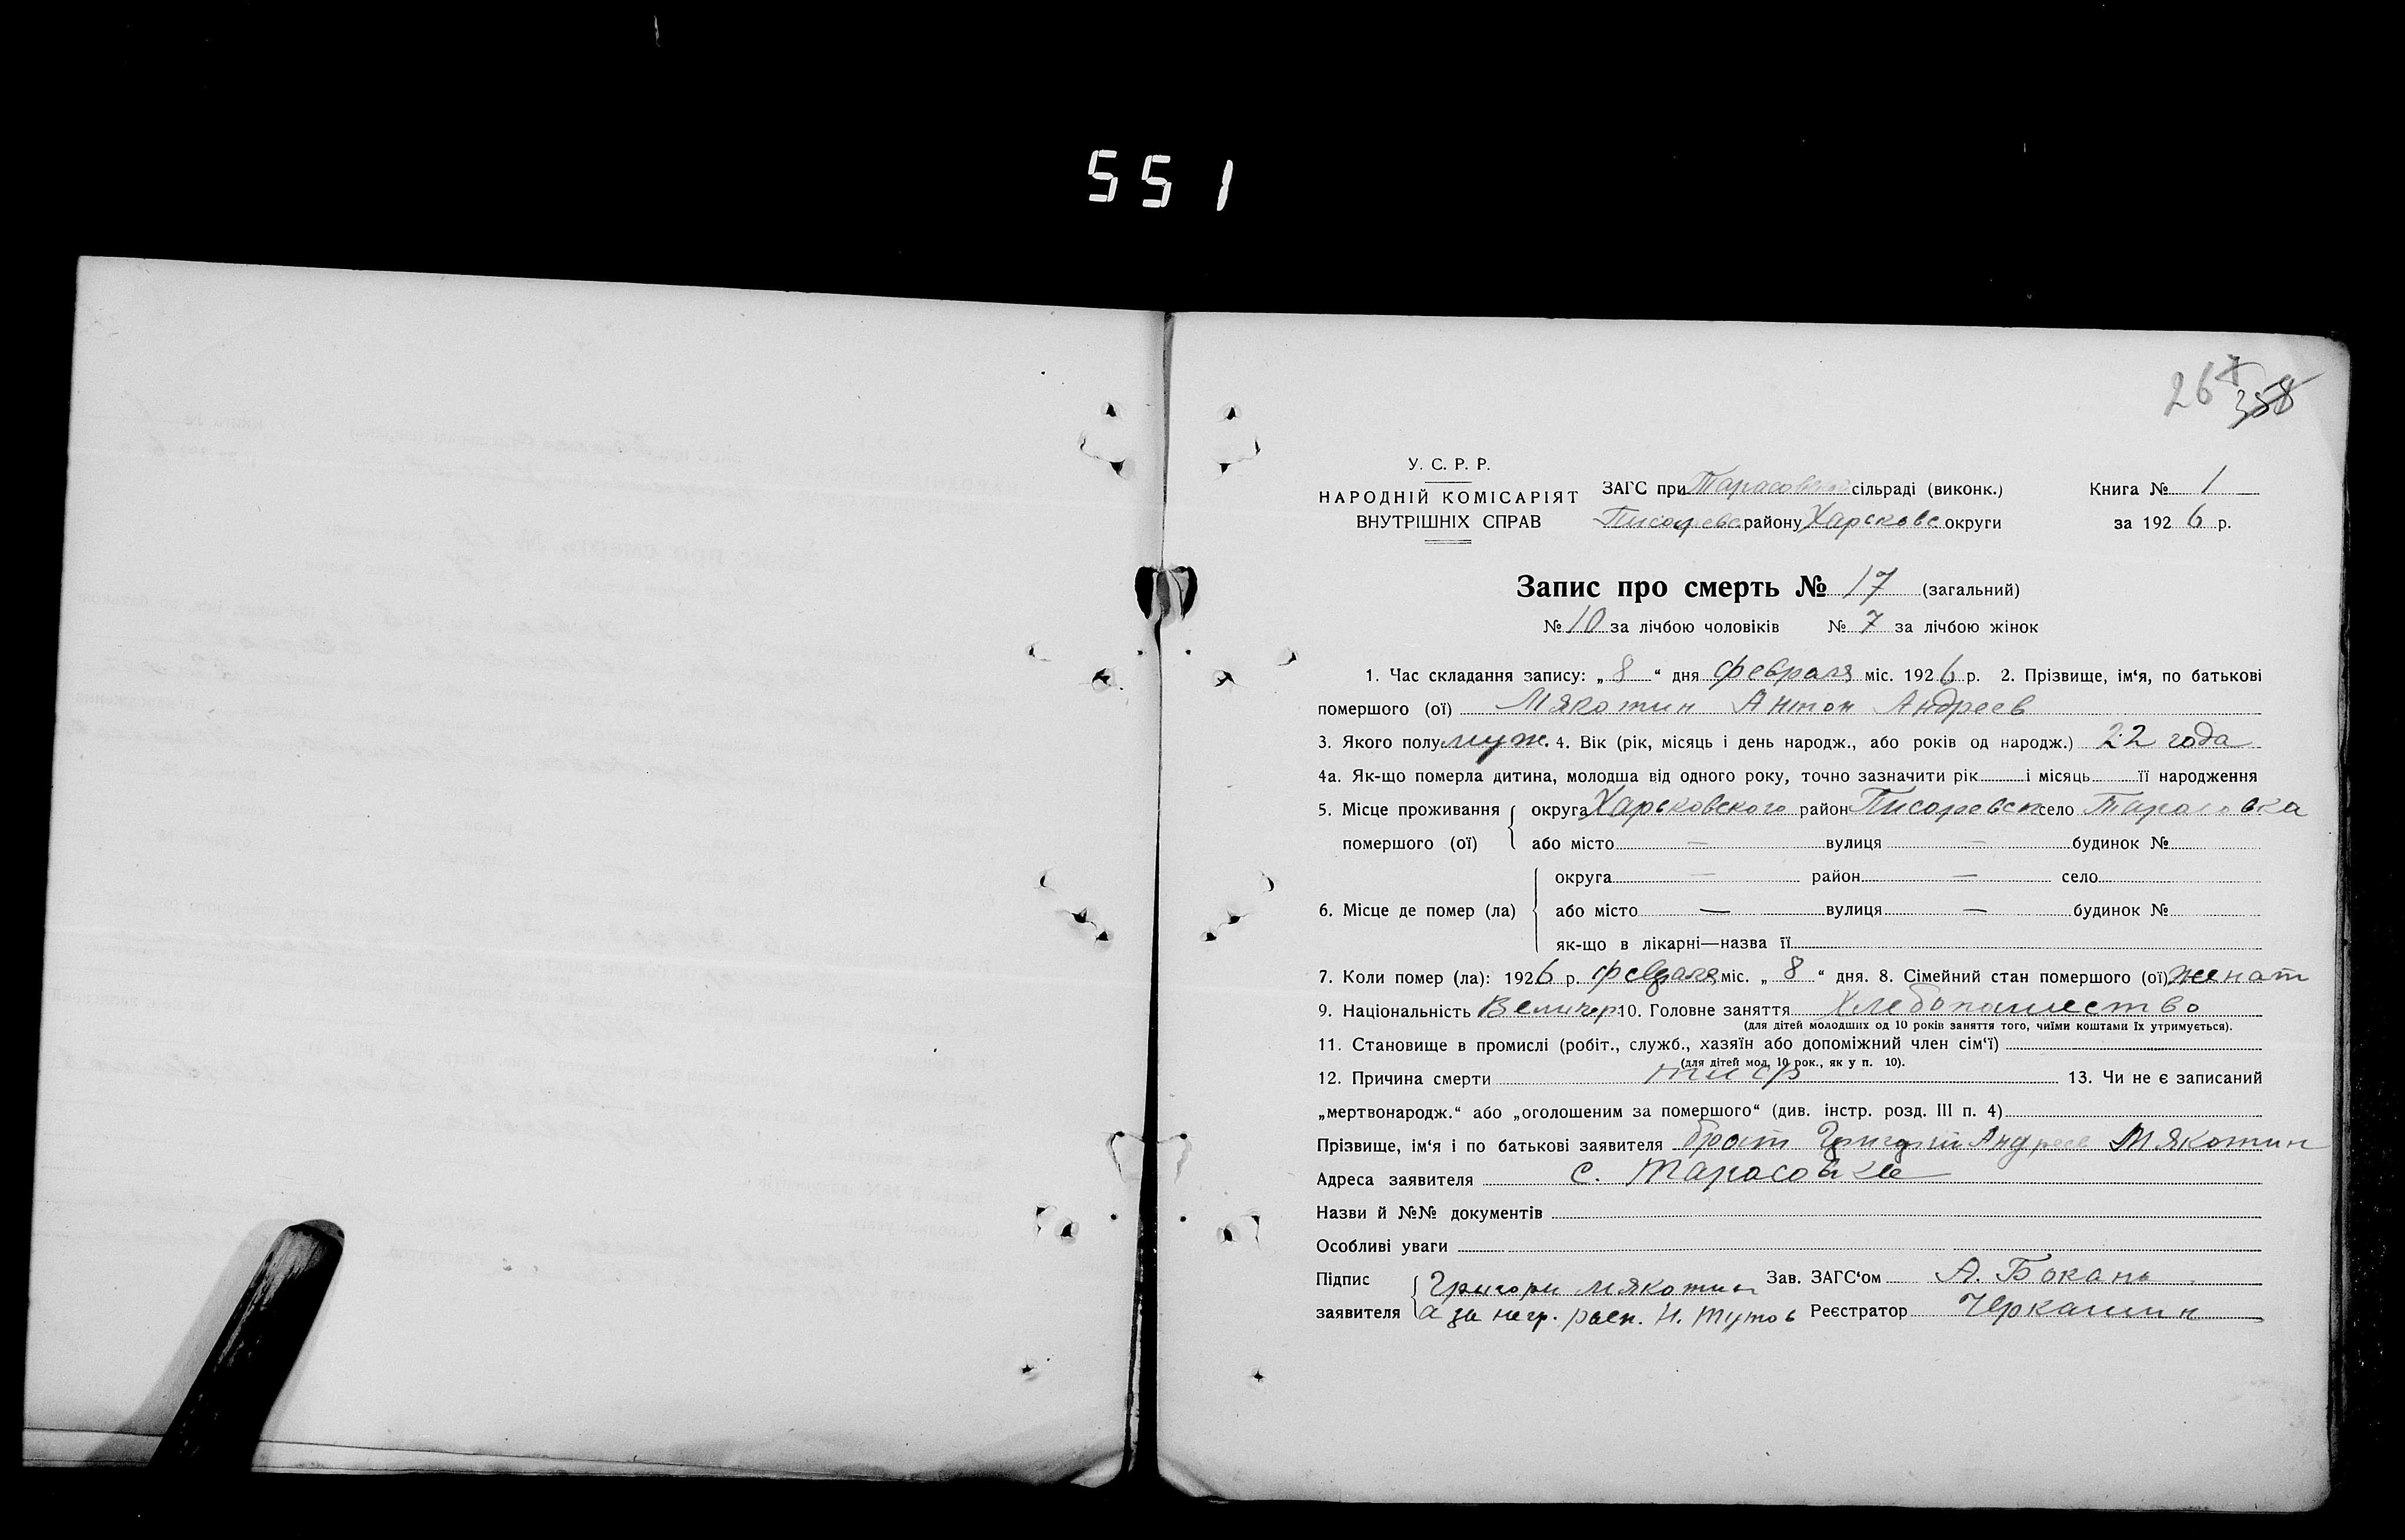 551
267 358
У. С. Р. Р.
НАРОДНІЙ КОМІСАРІЯТ
ВНУТРІШНІХ СПРАВ
ЗАГС при Тарасовской сільраді (виконк.)
Писаревс. району Харьковс. округи
Книга № 1
за 1926 р.
Запис про смерть № 17 (загальний)
№ 10 за лічбою чоловіків № 7 за лічбою жінок
1. Час складання запису: „ 8 “ дня февраля міс. 1926 р. 2. Прізвище, ім‘я, по батькові
помершого (ої) Мякотин Антон Андреев
3. Якого полу муж. 4. Вік (рік, місяць і день народж., або років од народж.) 22 года
4а. Як-що померла дитина, молодша від одного року, точно зазначити рік і місяць її народження
5. Місце проживання помершого (ої) округа Харьковского район Писаревск село Тарасовка
або місто — вулиця — будинок №
6. Місце де помер (ла) округа — район — село
або місто — вулиця — будинок №
як-що в лікарні—назва її
7. Коли помер (ла): 1926 р. февраля міс. „ 8 “ дня. 8. Сімейний стан помершого (ої) женат
9. Національність Великор 10. Головне заняття Хлебопашество
(для дітей молодших од 10 років заняття того, чиїми коштами їх утримується).
11. Становище в промислі (робіт., служб., хазяїн або допоміжний член сім‘ї)
(для дітей мод. 10 рок., як у п. 10).
12. Причина смерти тиф 13. Чи не є записаний
„мертвонародж.“ або „оголошеним за помершого“ (див. інстр. розд. III п. 4)
Прізвище, ім‘я і по батькові заявителя брат Григорий Андреев Мякотин
Адреса заявителя с. Тарасовка
Назви й №№ документів
Особливі уваги
Підпис заявителя Григори Мякотин Зав. ЗАГС‘ом А. Бокань
а за негр. расп. И. Тутов Реєстратор Черкашин